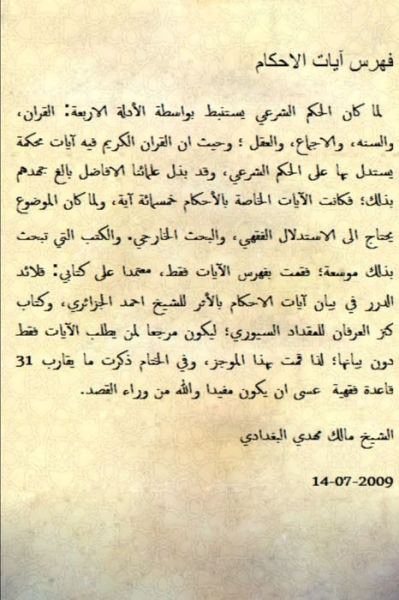 فهرس آيات الاحكام
لما كان الحكم الشرعي يستنبط بواسطة الأدلة الاربعة: القران،
والسنه، والاجماع، والعقل ؛ وحيث ان القران الكريم فيه آيات محكمة
يستدل بها على الحكم الشرعي، وقد بذل علمائنا الافاضل بالغ جهدهم
بذلك؛ فكانت الآيات الخاصة بالأحكام خمسمائة آية، ولما كان الموضوع
يحتاج الى الاستدلال الفقهي، والبحث الخارجي. والكتب التي تبحث
بذلك موسعة؛ فقمت بفهرس الآيات فقط، معتمدا على كتابي: قلائد
الدرر في بيان آيات الاحكام بالأثر للشيخ احمد الجزائري، وكتاب
كنز العرفان للمقداد السيوري؛ ليكون مرجعا لمن يطلب الآيات فقط
دون بيانها؛ لذا قمت بهذا الموجز، وفي الختام ذكرت ما يقارب 31
قاعدة فقهية عسى ان يكون مفيدا والله من وراء القصد.
الشيخ مالك مهدي البغدادي
14-07-2009